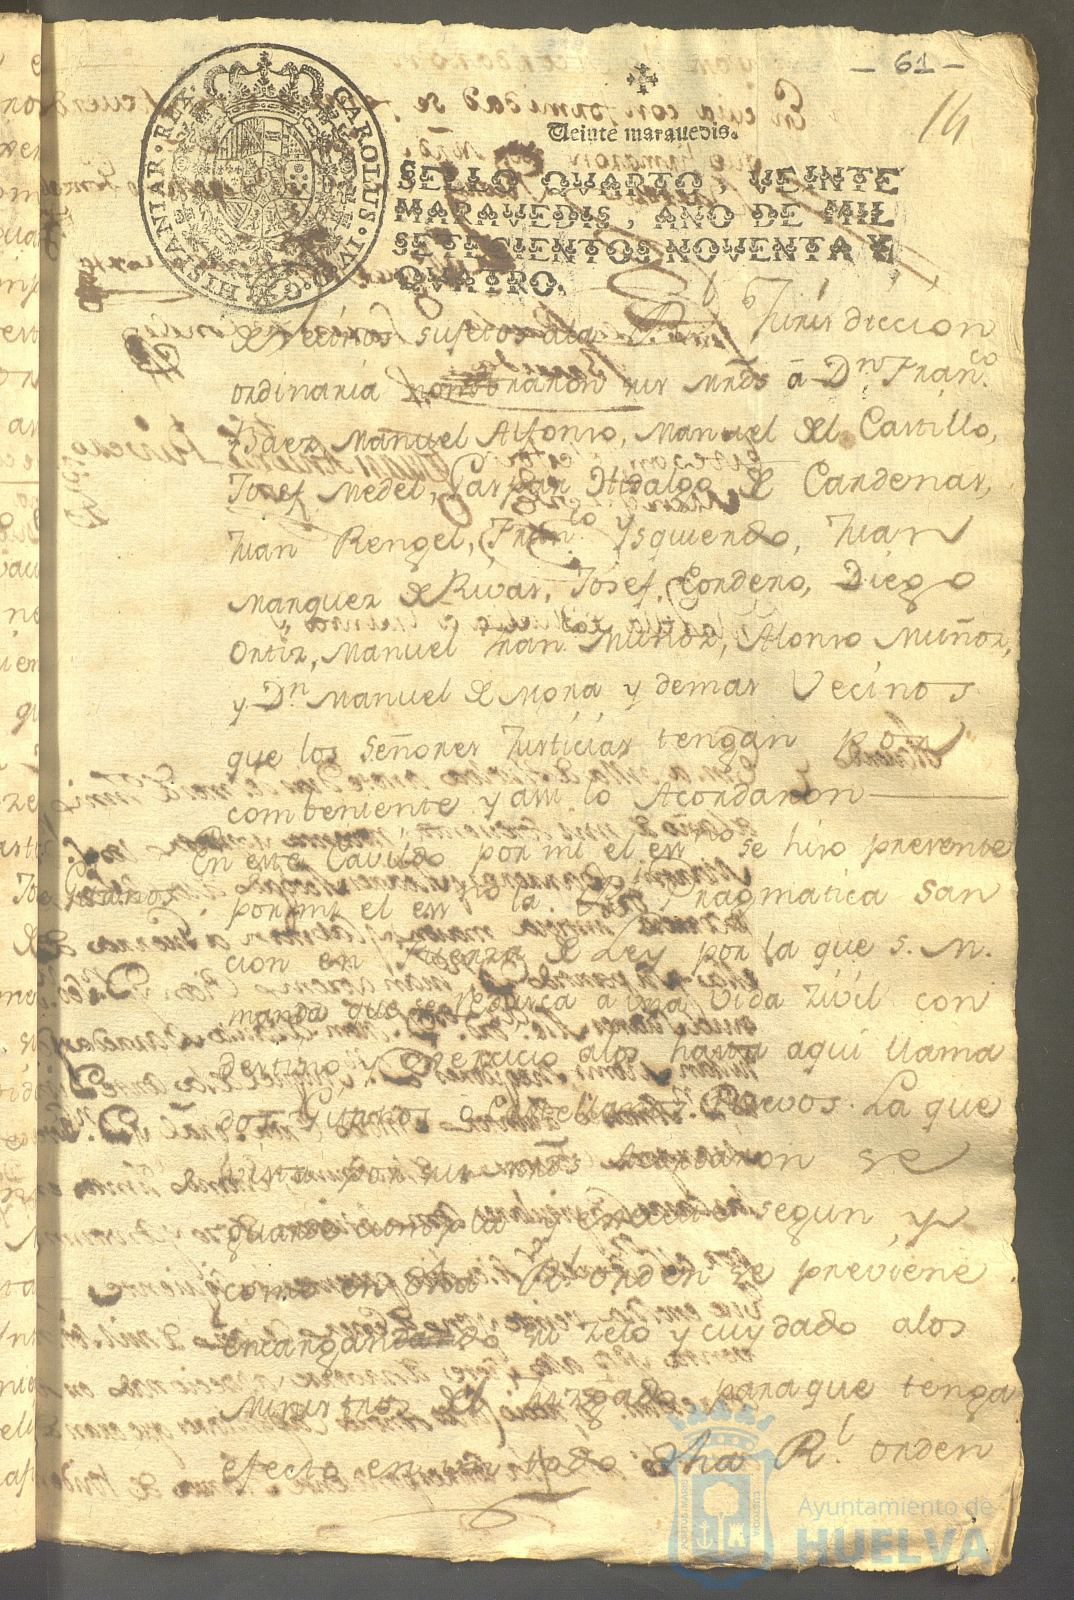 - 61 -
14
CAROLUS · IV · D · G · HISPANIAR · REX ·
Veinte maravedis.
SELLO QVARTO, VEINTE
MARAVEDIS, AÑO DE MIL
SETECIENTOS NOVENTA Y
QVATRO.
de vecinos sujetos ala Jurisdiccion
ordinaria nombraron sus mrds á Dn Franco
Baez, Manuel Alfonso, Manuel del Castillo,
Josef Medel, Gaspar Hidalgo de Cardenas,
Juan Rengel, Franco Ysquierdo, Juan
Marquez de Rivas, Josef Cordero, Diego
Ortiz, Manuel Fran Muñoz, Alonso Muñoz,
y Dn Manuel de Mora y demas Vecinos
que los Señores Justicias tengan por
combeniente y assi lo Acordaron
En este Cavildo por mi el essno se hizo presente
Gitanos. por mi el essno la Pragmatica San
cion en fuerza de Ley por la que S. M.
manda que se reduzca a una vida zivil con
destino y exercicio alos hasta aqui llama
dos Gitanos o Castellanos Nuevos. La que
vista por sus mrds Acordaron se
guarde cumpla y execute segun y
como en dha Rl orden se previene
encargando su zelo y cuydado alos
Ministros del Juzgado para que tenga
efecto en un todo dha Rl. orden
Ayuntamiento de
HUELVA